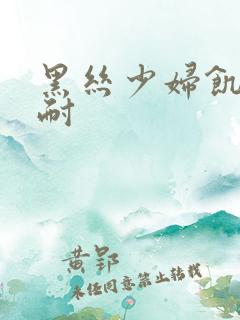 黑丝少婦飢
耐
黄郢
未经同意禁止转载